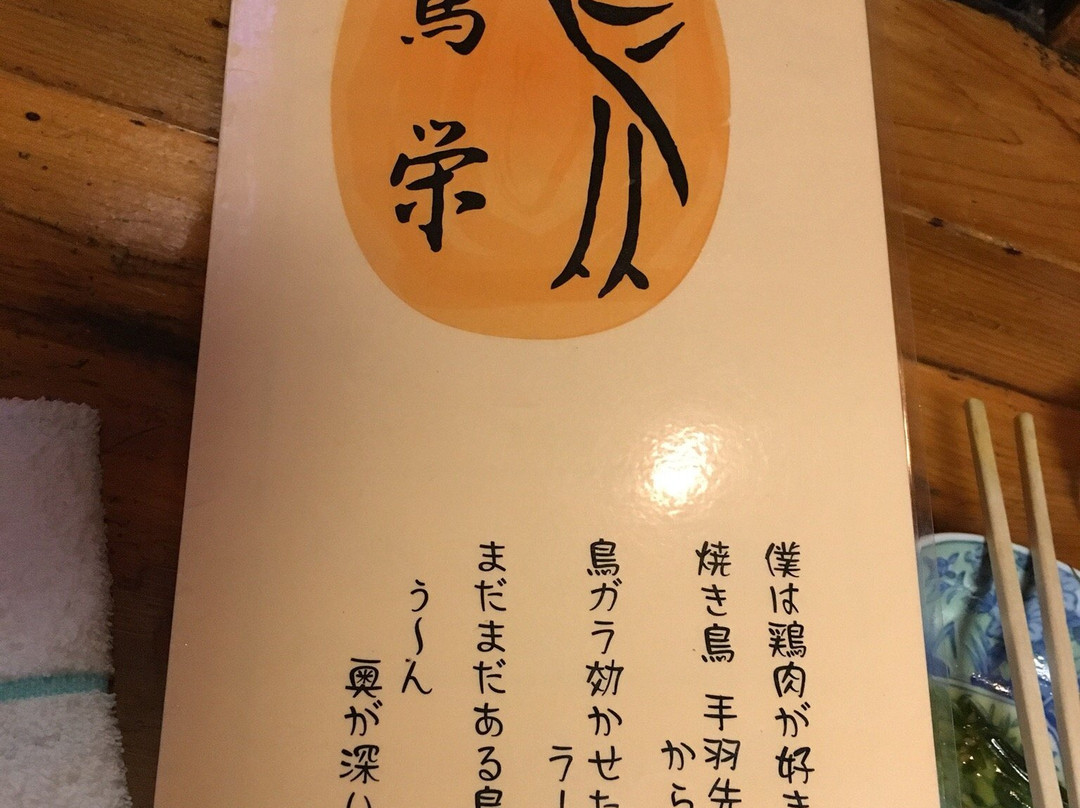 鳥栄
僕は鶏肉が好き
焼き鳥 手羽先
から
鳥ガラ効かせた
ラー
まだまだある鳥
う〜ん
奥が深い